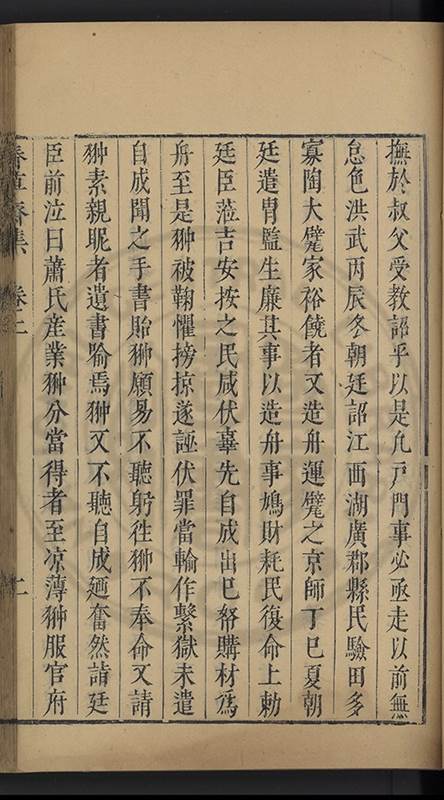 撫於叔父受教詔乎以是凢戸門事必亟走以前無
怠色洪武丙辰冬朝廷詔江西湖廣郡縣民驗田多
寡陶大甓家裕饒者又造舟運甓之京師丁巳夏朝
廷遣胄監生廉其事以造舟事鳩財耗民復命上勅
廷臣蒞吉安按之民咸伏辜先自成出已帑購材爲
舟至是翀被鞠懼搒掠遂誣伏罪當輸作繫獄未遣
自成聞之手書貽翀願易不聽躬徃翀不奉命又請
翀素親昵者遺書喻焉翀又不聽自成廼奮然詣廷
臣前泣曰蕭氏産業翀分當得者至凉薄翀服官府
春草齋集 卷之二